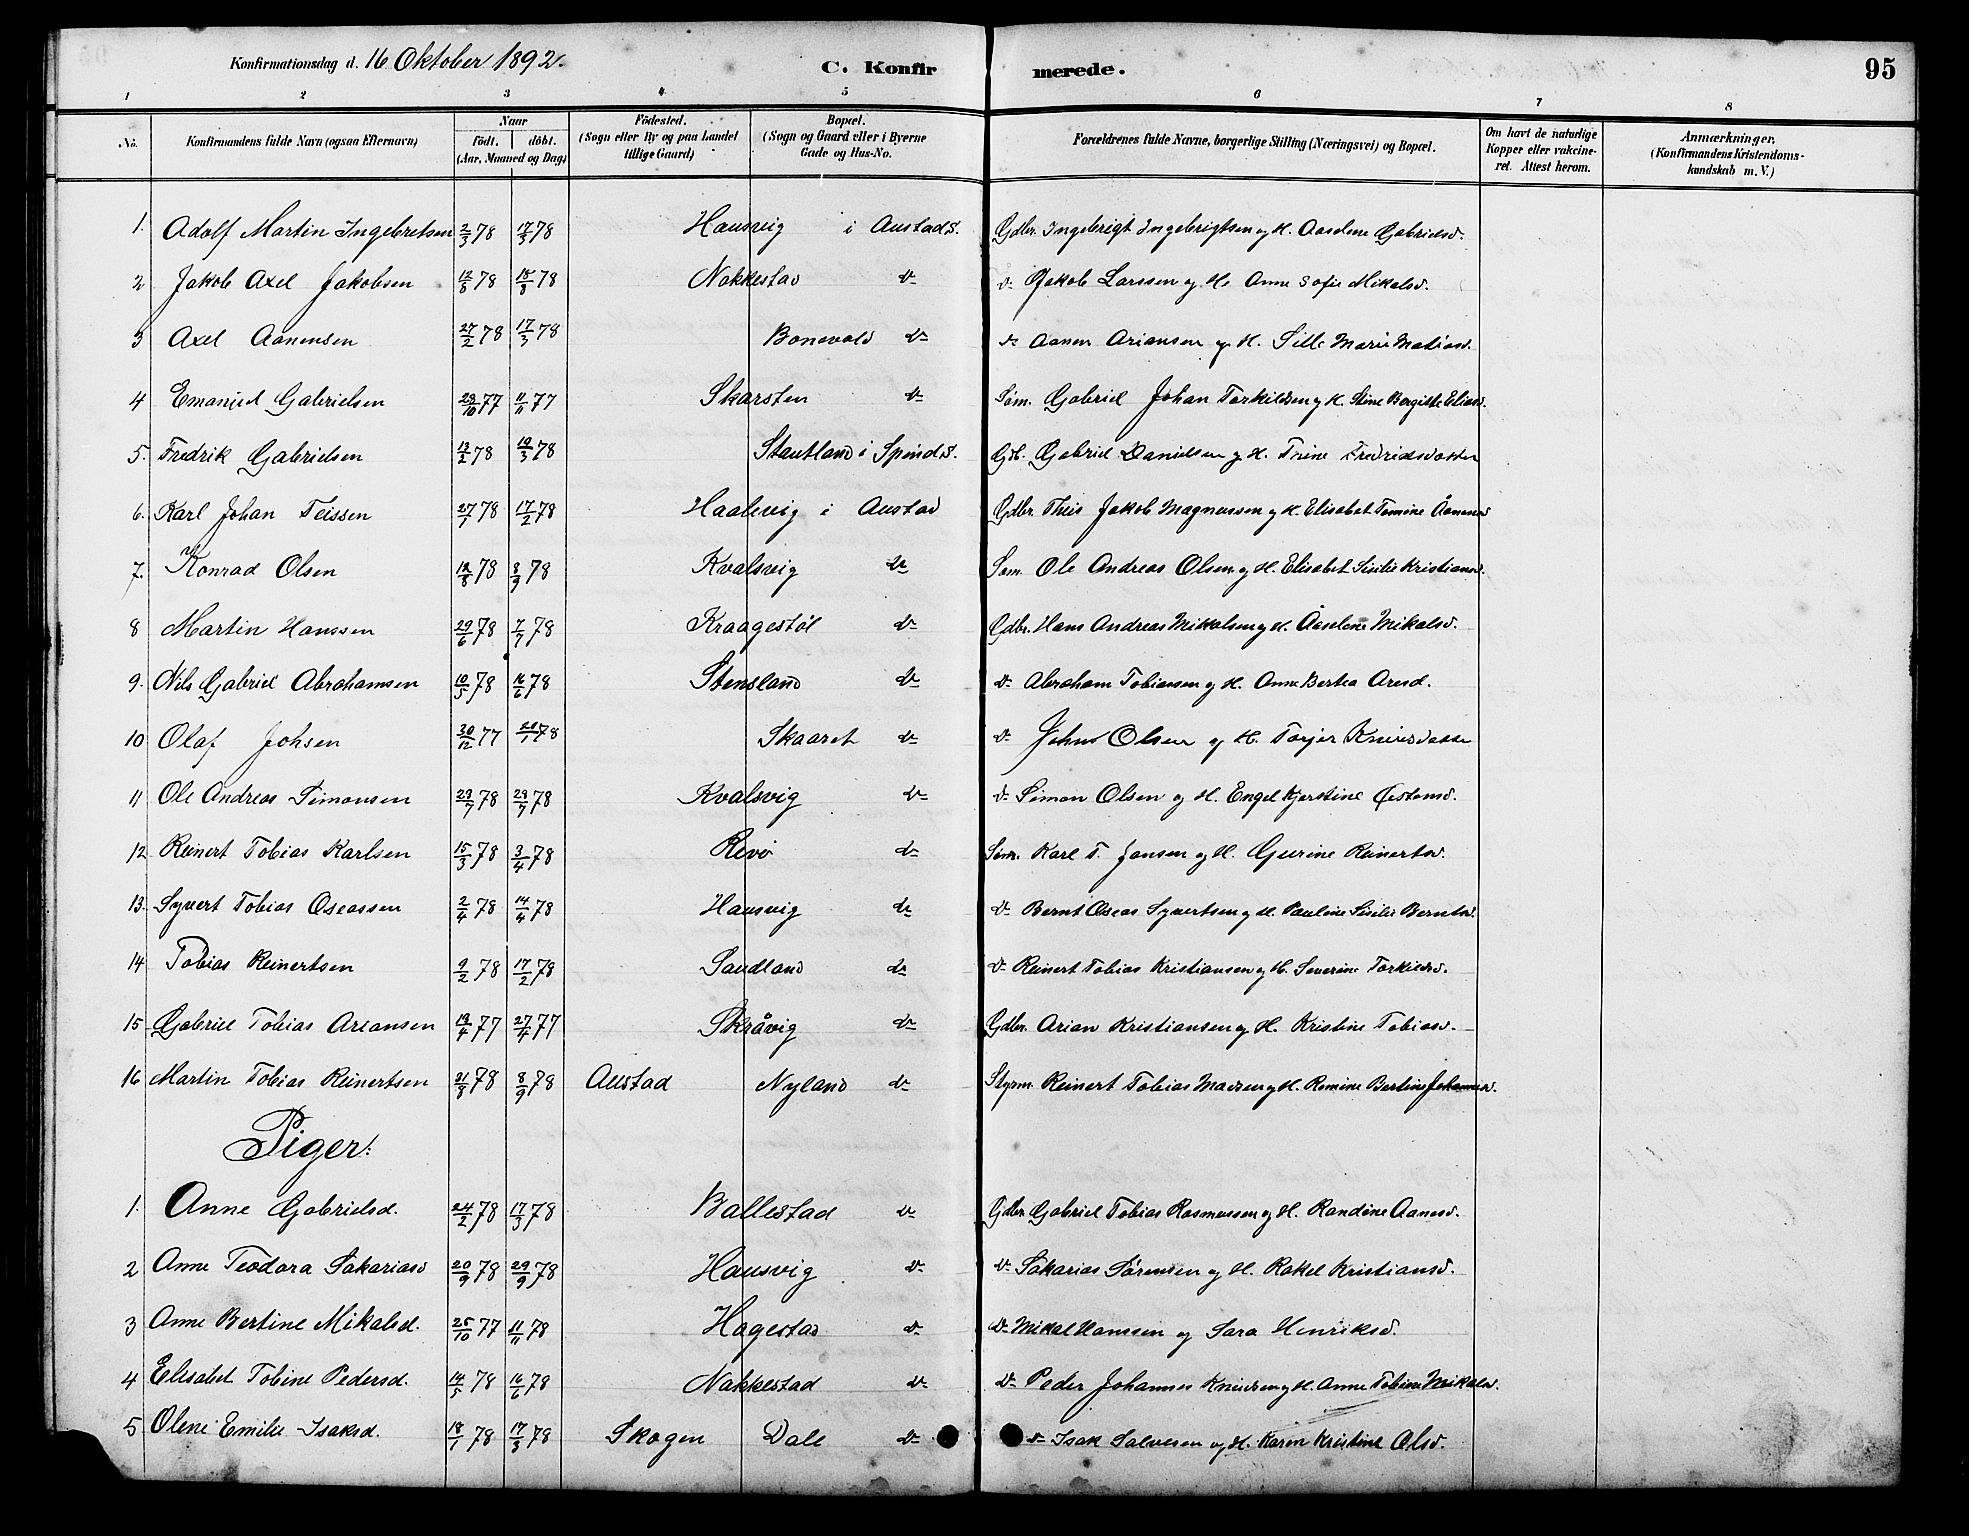 Konfirmationsdag d. 16 Oktober 1892.
C. Konfirmerede.
95
1 2 3 4 5 6 7 8
No.
Konfirmandens fulde Navn (ogsaa Efternavn)
Naar
födt. döbt.
(Aar, Maaned og Dag)
Födested.
(Sogn eller By og paa Landet
tillige Gaard)
Bopæl.
(Sogn og Gaard eller i Byerne
Gade og Hus-No.
Forældrenes fulde Navne, borgerlige Stilling (Næringsvei) og Bopæl.
Om havt de naturlige
Kopper eller vakcine-
ret. Attest herom.
Anmærkninger.
(Konfirmandens Kristendoms-
kundskab m. V.)
1. Adolf Martin Ingebretsen 2/3 78 17/3 78 Hausvig i Austad S. Gdbr. Ingebrigt Ingebrigtsen og H. Aaselene Gabrielsd.
2 Jakob Axel Jakobsen 12/8 78 18/8 78 Nakkestad do Jakob Larssen og H. Anne Sofie Mikalsd.
3 Axel Aanensen 27/2 78 17/3 78 Bonevald do Aanen Ariansen og H. Sille Marie Matiasd.
4 Emanuel Gabrielsen 29/10 77 11/11 77 Skarsten do Søm. Gabriel Johan Torkildsen og H. Stine Bergitte Eliasd.
5. Fredrik Gabrielsen 13/2 78 10/3 78 Stautland i Spind S. Gdb. Gabriel Danielsen og H. Trine Fredriksdatter
6. Karl Johan Teissen 27/1 78 17/2 78 Haalevig i Austad Gdbr. Theis Jakob Magnussen og H. Elisabet Tomine Aanensd
7. Konrad Olsen 12/8 78 8/9 78 Kvalsvig do Søm. Ole Andreas Olsen og H. Elisabet Sisilie Kristiansd.
8 Martin Hanssen 29/6 78 7/7 78 Kraagestøl do Gdbr. Hans Andreas Mikkalsen og H. Åselene Mikalsd.
9. Nils Gabriel Abrahamsen 10/5 78 16/6 78 Stensland do Abraham Tobiassen og H. Anne Bertea Aresd.
10 Olaf Johsen 30/12 77 20/1 78 Skaaret do John Olsen og H. Torjer Knudsdatter
11 Ole Andreas Simonsen 23/7 78 29/7 78 Kvalsvig do Simon Olsen og H. Engel Kjerstine Østensd.
12 Reinert Tobias Karlsen 15/3 78 3/4 78 Revø do Søm. Karl T. Jansen og H. Gurine Reinertsd.
13. Syvert Tobias Oseassen 2/4 78 14/4 78 Hausvig do Bernt Oseas Syvertsen og H. Pauline Sisilie Berntsd.
14 Tobias Reinertsen 9/2 78 17/2 78 Sandland do Reinert Tobias Kristiansen og H. Severine Torkildsd.
15 Gabriel Tobias Areansen 19/4 77 27/4 77 Skråvig do Gdbr. Arian Kristiansen og H. Kristine Tobiasd.
16 Martin Tobias Reinertsen 21/8 78 8/9 78 Austad Nyland do Styrm. Reinert Tobias Madsen og H. Romine Bertine Johannesd.
Piger:
1. Anne Gabrielsd. 24/2 78 17/3 78 Ballestad do Gdbr Gabriel Tobias Rasmussen og H. Randine Aanesd.
2 Anne Teodora Sakariasd 20/9 78 29/9 78 Hausvig do Sakarias Sørensen og H. Rakel Kristiansd.
3 Anne Bertine Mikalsd. 25/10 77 11/11 78 Hagestad do Mikal Hanssen og Sara Henriksd.
4 Elisabet Tobine Pedersd. 14/5 78 16/6 78 Nakkestad do Peder Johannes Knudsen og H. Anne Tobine Mikalsd.
5 Olene Emilie Isaksd. 18/1 78 17/3 78 Skogen Dale do Isak Salvesen og H. Karen Kristine Olsd.